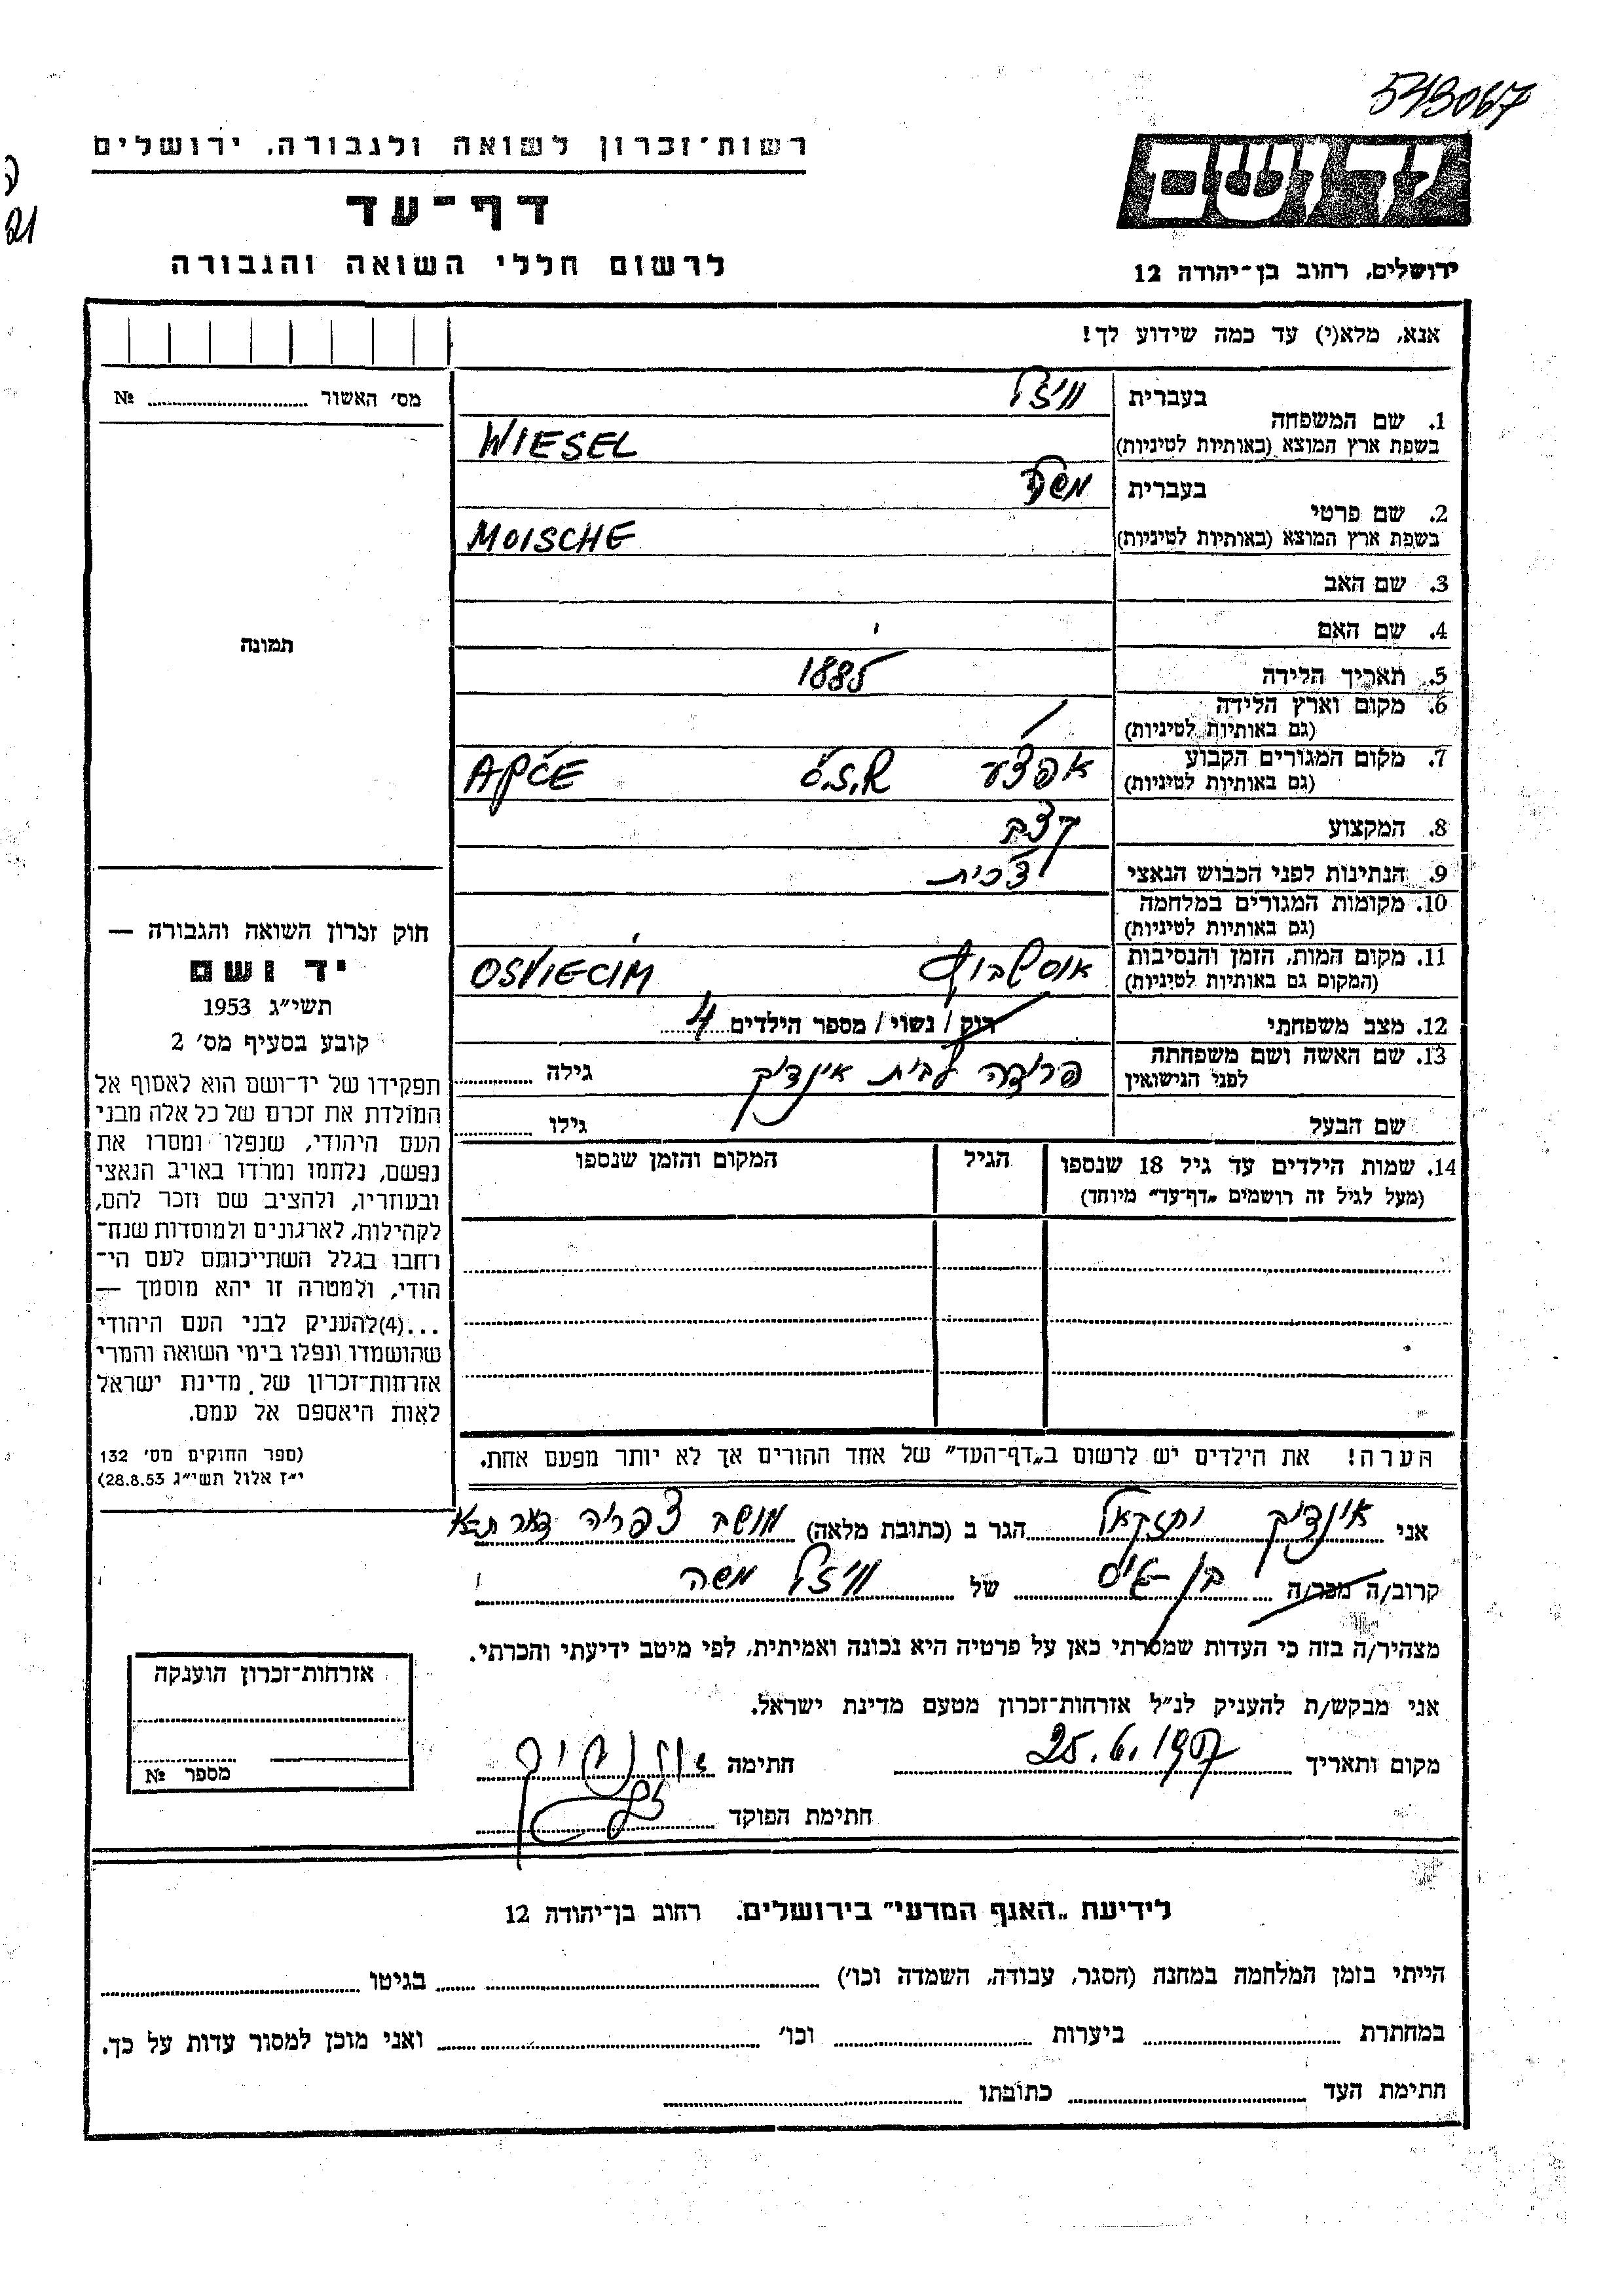 543067
רשות־זכרון לשואה ולגבורה, ירושלים
ידושם
ה
21
דף־עד
לרשום חללי השואה והגבורה
ירושלים, רחוב בן־יהודה 12
אנא, מלא(י) עד כמה שידוע לך!
מס׳ האשור № 
1. שם המשפחה בעברית וויזל
בשפת ארץ המוצא (באותיות לטיניות) WIESEL
2. שם פרטי בעברית משה
בשפת ארץ המוצא (באותיות לטיניות) MOISCHE
3. שם האב
4. שם האם
תמונה
5. תאריך הלידה 1885
6. מקום וארץ הלידה
(גם באותיות לטיניות)
7. מקום המגורים הקבוע אפצע Č.S.R. APČE
(גם באותיות לטיניות)
8. המקצוע קצב
9. הנתינות לפני הכבוש הנאצי צ'כית
10. מקומות המגורים במלחמה
(גם באותיות לטיניות)
11. מקום המות, הזמן והנסיבות OSVIECIM
(המקום גם באותיות לטיניות)
12. מצב משפחתי רוק / נשוי / מספר הילדים 4
13. שם האשה ושם משפחתה פרידה לבית אינדיק גילה
לפני הנישואין
שם הבעל גילו
14. שמות הילדים עד גיל 18 שנספו הגיל המקום והזמן שנספו
(מעל לגיל זה רושמים „דף־עד” מיוחד)
חוק זכרון השואה והגבורה —
יד ושם
תשי״ג 1953
קובע בסעיף מס׳ 2
תפקידו של יד־ושם הוא לאסוף אל
המולדת את זכרם של כל אלה מבני
העם היהודי, שנפלו ומסרו את
נפשם, נלחמו ומרדו באויב הנאצי
ובעוזריו, ולהציב שם וזכר להם,
לקהילות, לארגונים ולמוסדות שנח־
רחבו בגלל השתייכותם לעם הי־
הודי, ולמטרה זו יהא מוסמך —
...(4)להעניק לבני העם היהודי
שהושמדו ונפלו בימי השואה והמרי
אזרחות־זכרון של מדינת ישראל
לאות היאספם אל עמם.
(ספר החוקים מס׳ 132
י״ז אלול תשי״ג 28.8.53)
הערה! את הילדים יש לרשום ב„דף־העד” של אחד ההורים אך לא יותר מפעם אחת.
אני אינדיק יחזקאל הגר ב (כתובת מלאה) מושב צפריה דאר ת״א
קרוב/ה מכר/ה בן גיס של וויזל משה
מצהיר/ה בזה כי העדות שמסרתי כאן על פרטיה היא נכונה ואמיתית, לפי מיטב ידיעתי והכרתי.
אני מבקש/ת להעניק לנ״ל אזרחות־זכרון מטעם מדינת ישראל.
מקום ותאריך 25.6.1957 חתימה
חתימת הפוקד
אזרחות־זכרון הוענקה
מספר №
לידיעת „האגף המדעי” בירושלים. רחוב בן־יהודה 12
הייתי בזמן המלחמה במחנה (הסגר, עבודה, השמדה וכו׳) בגיטו
במחתרת ביערות וכו׳ ואני מוכן למסור עדות על כך.
חתימת העד כתובתו